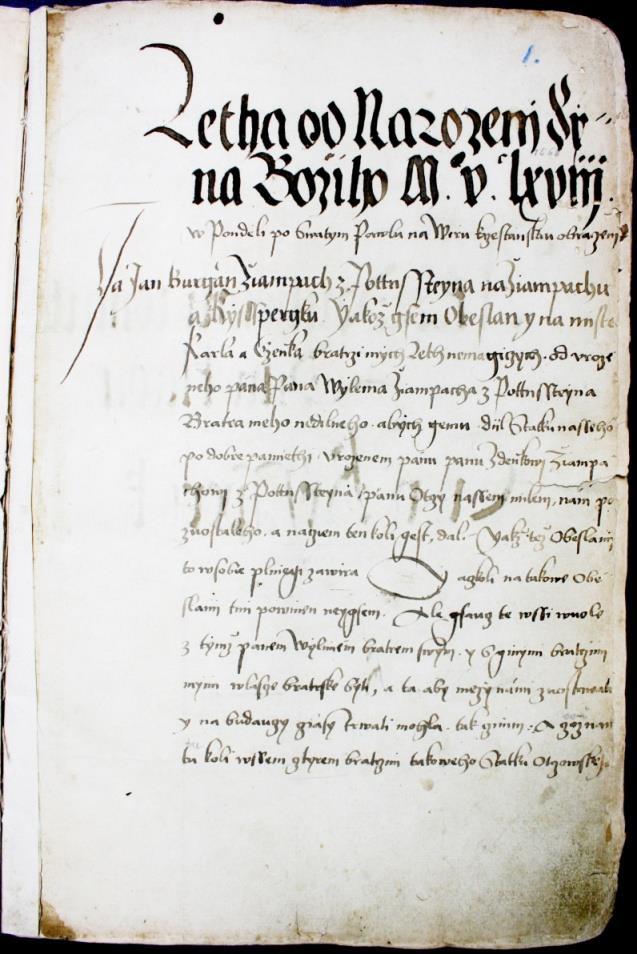 1.
Letha od Narozenj Sy-
na Božiho M.° v.c lxviij.
w Pondeli po Swatym Pawlu na Wiru krzestansku obraczeni
Ja Jan Burgan Žiampach z Pottnssteyna na Žiampachu
a Kysspergku Yakož gsem Obeslan y na miste
Karla a Czenka bratrzi mych Leth nemagigych. Od vroze
neho pana Pana Wylema Žiampacha z Pottnssteyna
Bratra meho nedilneho. abych gemu dil Statku nasseho
po dobre pamiethi, vrozenem panu panu Zdenkowi Žiampa
chowi z Pottnssteyna, panu Otczy nassem milem, nam po
zuostaleho, a na czem ten koli gest, dal. Yakž též Obeslani
to w sobie plniegi zawira Y aczkoli na takowe Obe
slani tim powinen neygsem. Ale gsaucz te wssi wuole
z tymž panem Wylmem bratrem swym. y s ginym bratrzim
mym w lasce bratrske byti, a ta aby mezy námi zuostawala
y na budauczy cziasy trwati mohla. tak czinim. A poznaw
tu koli wssem cztyrem bratrzim takoweho Statku Otczowske